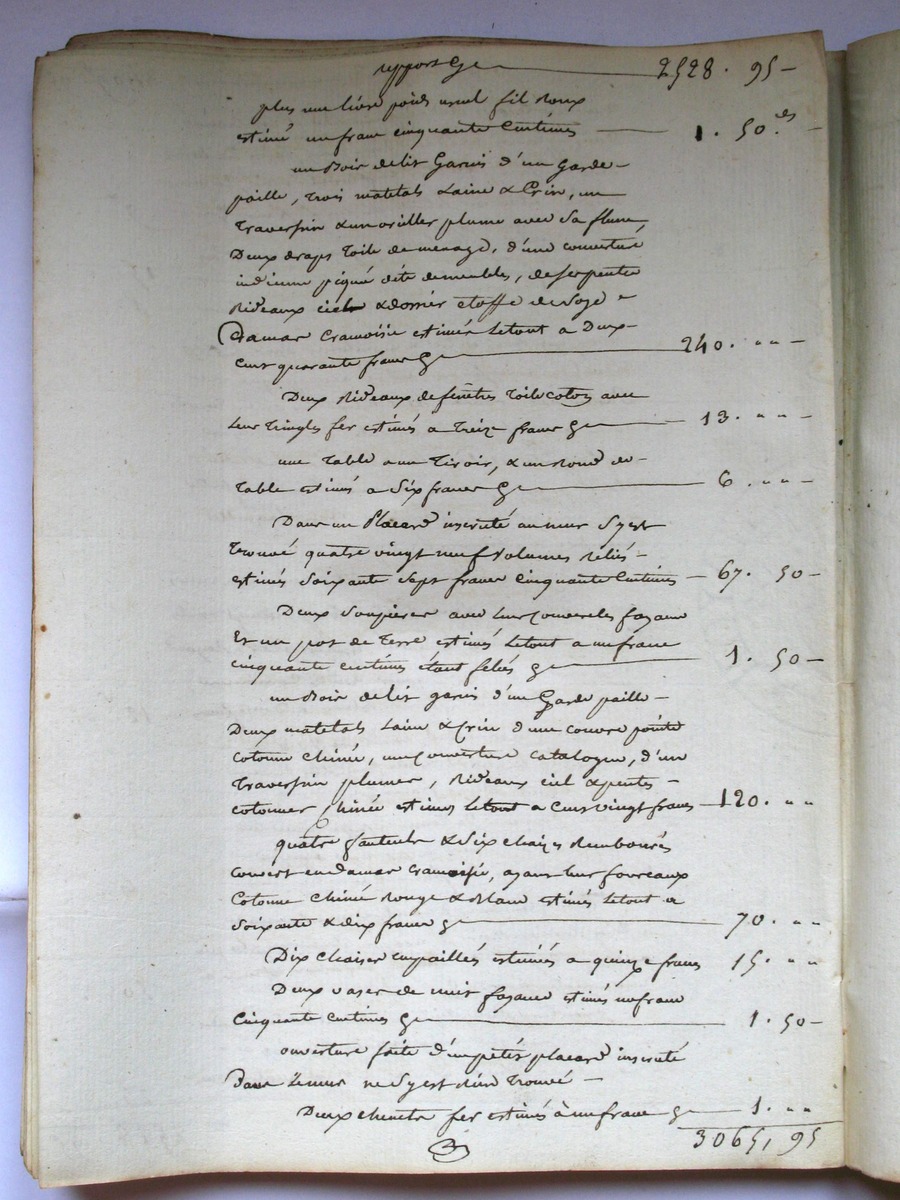 report 2528 . 95 —
plus une livre poids usuel fil roux
estimé un franc cinquante centimes — 1 . 50 .es —
un bois de lit garnis d'un garde
paille, trois matelats laine & crin, un
traversin & un oriller plume avec sa
Deux draps toile de menage, d'une couverture
indienne piqué de
Rideaux ciel & dossier etoffe de soye
Damas cramoisie estimés letout a Deux
cens quarante francs — 240 . " " —
Deux Rideaux de fenêtres toile coton avec
leur tringles fer estimés a treize francs — 13 . " " —
une table a un tiroir, & un rond de
table estimés a six francs — 6 . " " —
Dans un Placard incruté au mur s'y est
trouvé quatre vingt neuf volumes reliés
estimés soixante sept francs cinquante centimes — 67 . 50 —
Deux soupieres avec leur couvercles fayance
Et un pot de terre estimés letout a un franc
cinquante centimes étant felés — 1 . 50 —
un Bois de lit garnis d'un garde paille —
Deux matelats laine & crin d'une couvre pointe
cotonne chinée, une couverture catalogne, d'un
traversin plumes, Rideaux ciel & pentes
cotonnes chinée estimés letout a cens vingt francs — 120 . " "
quatre fauteuils & six chaizes rembourés
couvert en damas cramoisie, ayant leur foureaux
cotonne chiné rouge & blanc estimés letout a
soixante & dix francs — 70 . " "
Dix chaises empaillés estimées a quinze francs 15 . " "
Deux vases de nuit fayance estimés un franc
cinquante centimes — 1 . 50 —
ouverture faite d'un petit placard incruté
Dans le mur ne s'y est rien trouvé —
Deux chenets fer estimés à un franc — 1 . " "
3065, 95